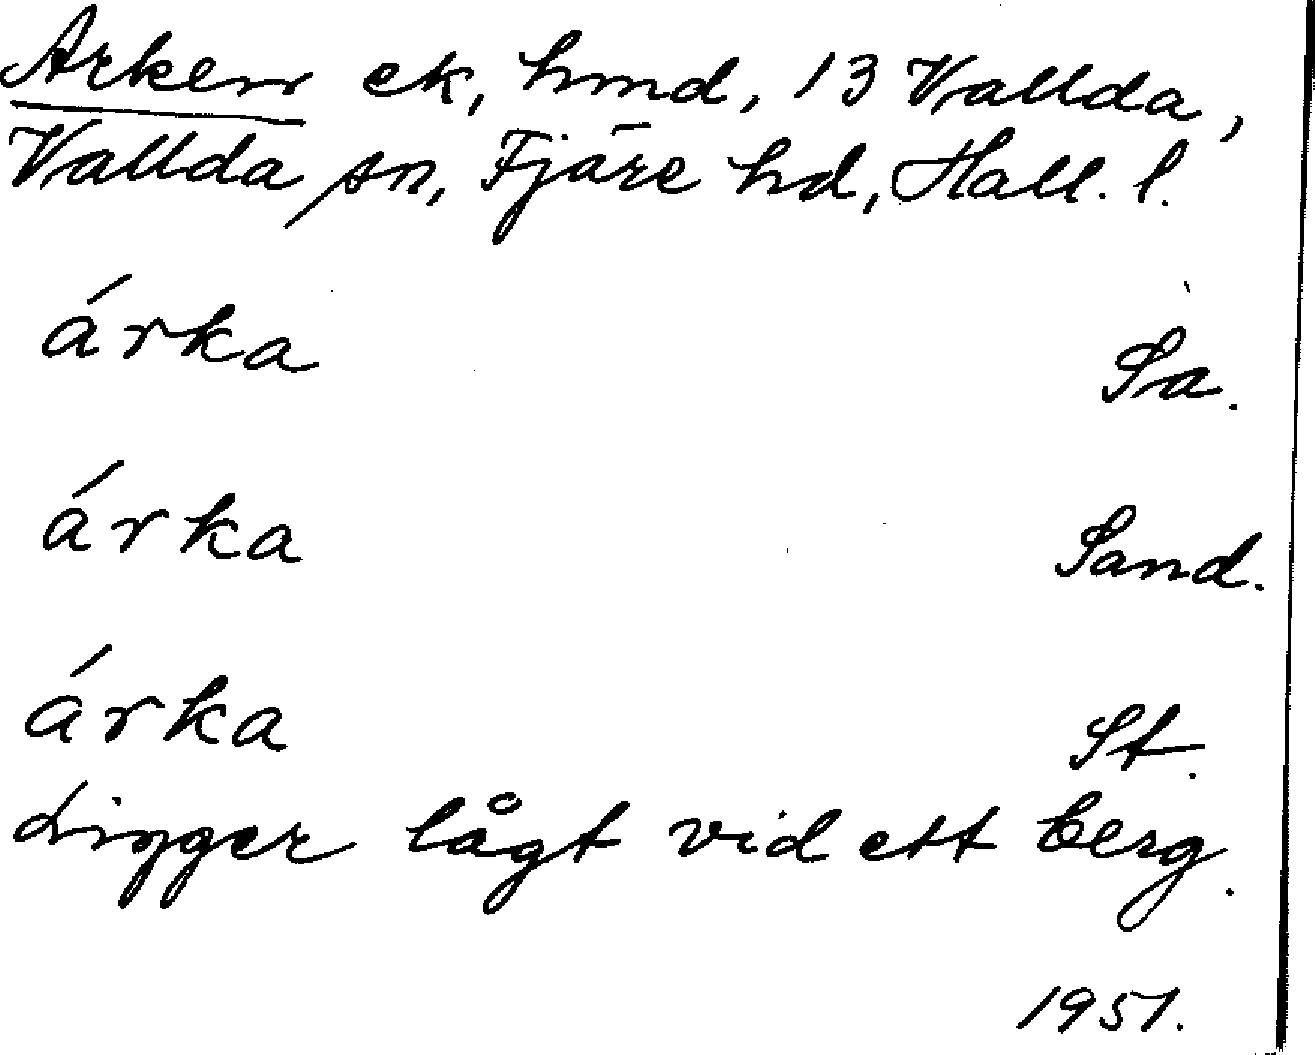 Arken ek, hmd, 13 Vallda,
Vallda sn, Fjäre hd, Hall. l.
árka Sa.
árka Sand.
árka St.
Ligger lågt vid ett berg.
1951.